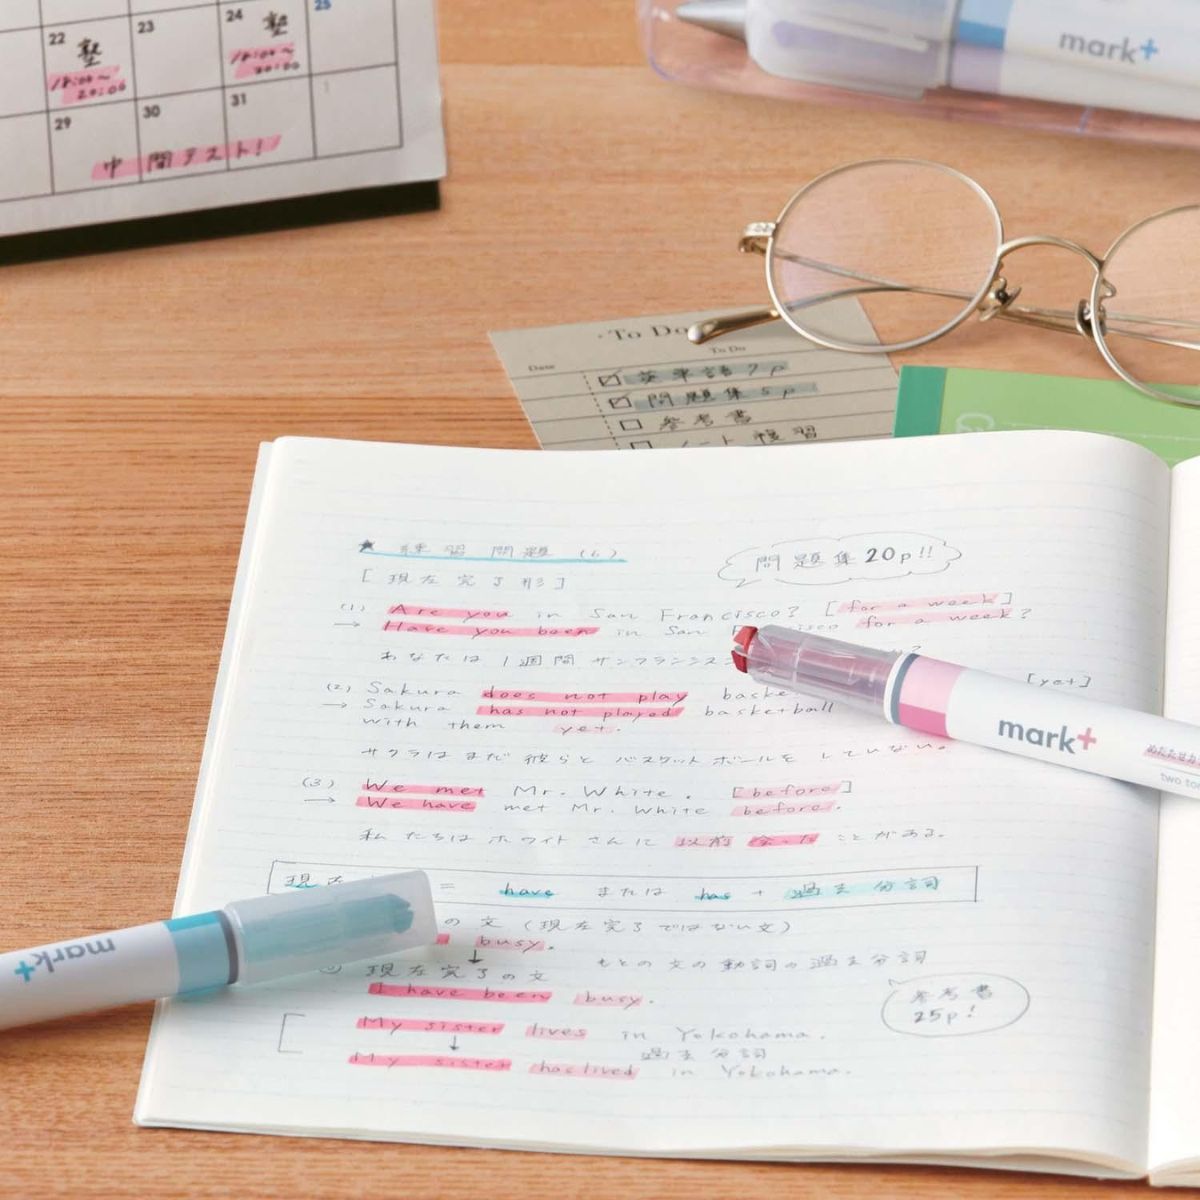 22
23
24
25
塾
塾
18:00~
20:00
18:00~
20:00
29
30
31
1
中間テスト!
mark+
To Do
To Do
Date
英単語7p
問題集5p
参考書
ノート復習
★ 練習問題 (6)
問題集20p!!
[現在完了形]
(1) Are you in San Francisco? [for a week]
→ Have you been in San Francisco for a week?
あなたは1週間サンフランシスコ
(2) Sakura does not play baske [yet]
→ Sakura has not played basketball
with them yet.
サクラはまだ彼らとバスケットボールをしていない。
(3) We met Mr. White. [before]
→ We have met Mr. White before.
私たちはホワイトさんに以前会ったことがある。
現在 = have または has + 過去分詞
の文(現在完了ではない文)
busy.
↓
現在完了の文 もとの文の動詞の過去分詞
I have been busy.
参考書
25p!
My sister lives in Yokohama.
↓ 過去分詞
My sister has lived in Yokohama.
mark+
two to
mark+